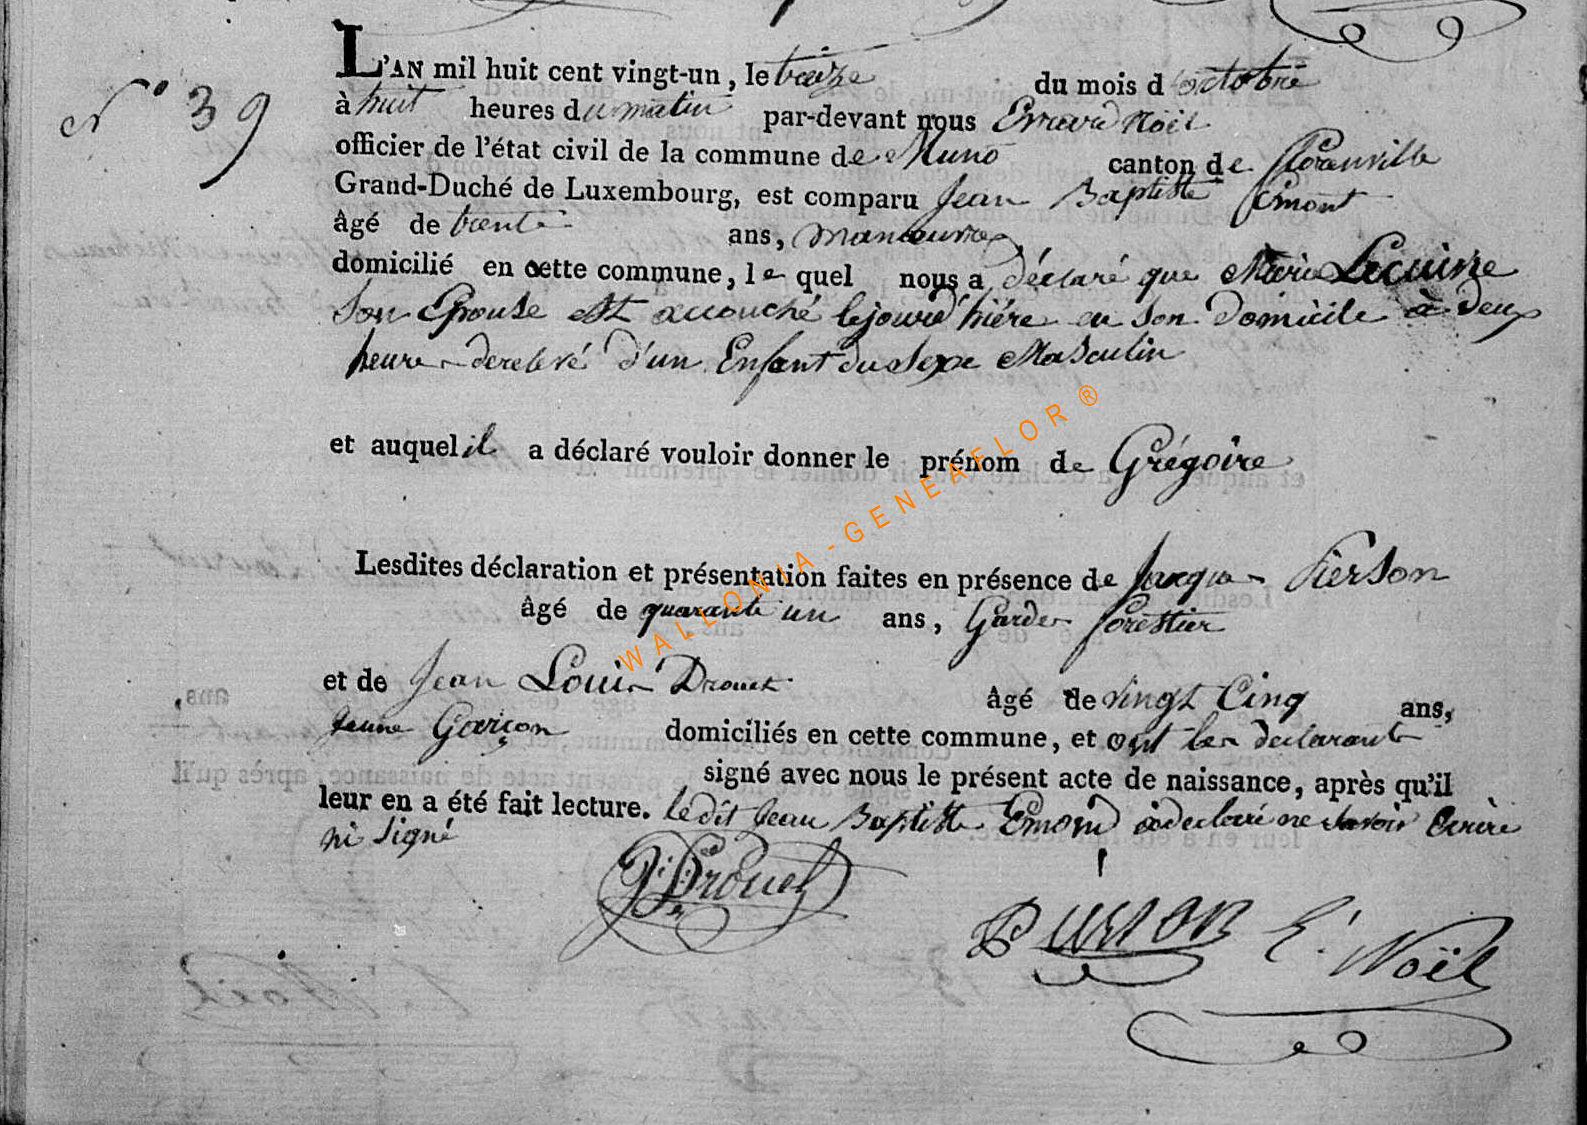 N° 39
L'AN mil huit cent vingt-un, le treize du mois d'octobre
à huit heures du matin par-devant nous Evrard Noël
officier de l'état civil de la commune de Muno canton de florenville
Grand-Duché de Luxembourg, est comparu Jean Baptiste Emont
âgé de trente ans, manœuvre
domicilié en cette commune, le quel nous a déclaré que Marie Lecuivre
Son Epouse est accouché lejourd'hiére en son domicile à deux
heure derelevé d'un Enfant du Sexe Masculin
et auquel il a déclaré vouloir donner le prénom de Grégoire
Lesdites déclaration et présentation faites en présence de Jacque Pierson
âgé de quarante un ans, Garde forestier
et de Jean Louis Drouet âgé de vingt Cinq ans,
jeune Garçon domiciliés en cette commune, et ont les declarant
signé avec nous le présent acte de naissance, après qu'il
leur en a été fait lecture. ledit Jean Baptiste Emond a declaré ne savoir Ecrire
ni Signé
Drouet
Pierson E. Noël
WALLONIA-GENEAFLOR®